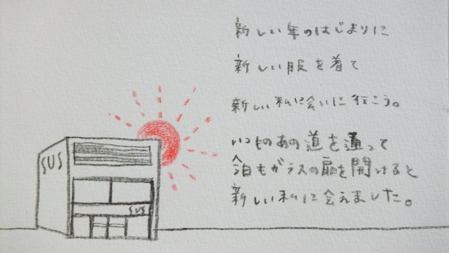 新しい年のはじまりに
新しい服を着て
新しい私に会いに行こう。
いつものあの道を通って
今日もガラスの扉を開けると
新しい私に会えました。
SUS
SUS